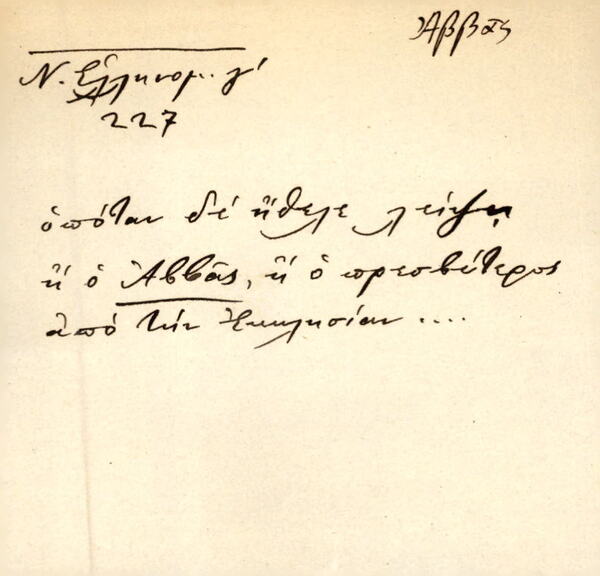 Ἀββᾶς
Ν. Ἑλληνομ. γ'
227
ὁπόταν δέ ἤθελε λείψῃ
ἤ ὁ Ἀββᾶς, ἤ ὁ πρεσβύτερος
ἀπό τήν Ἐκκλησίαν ....